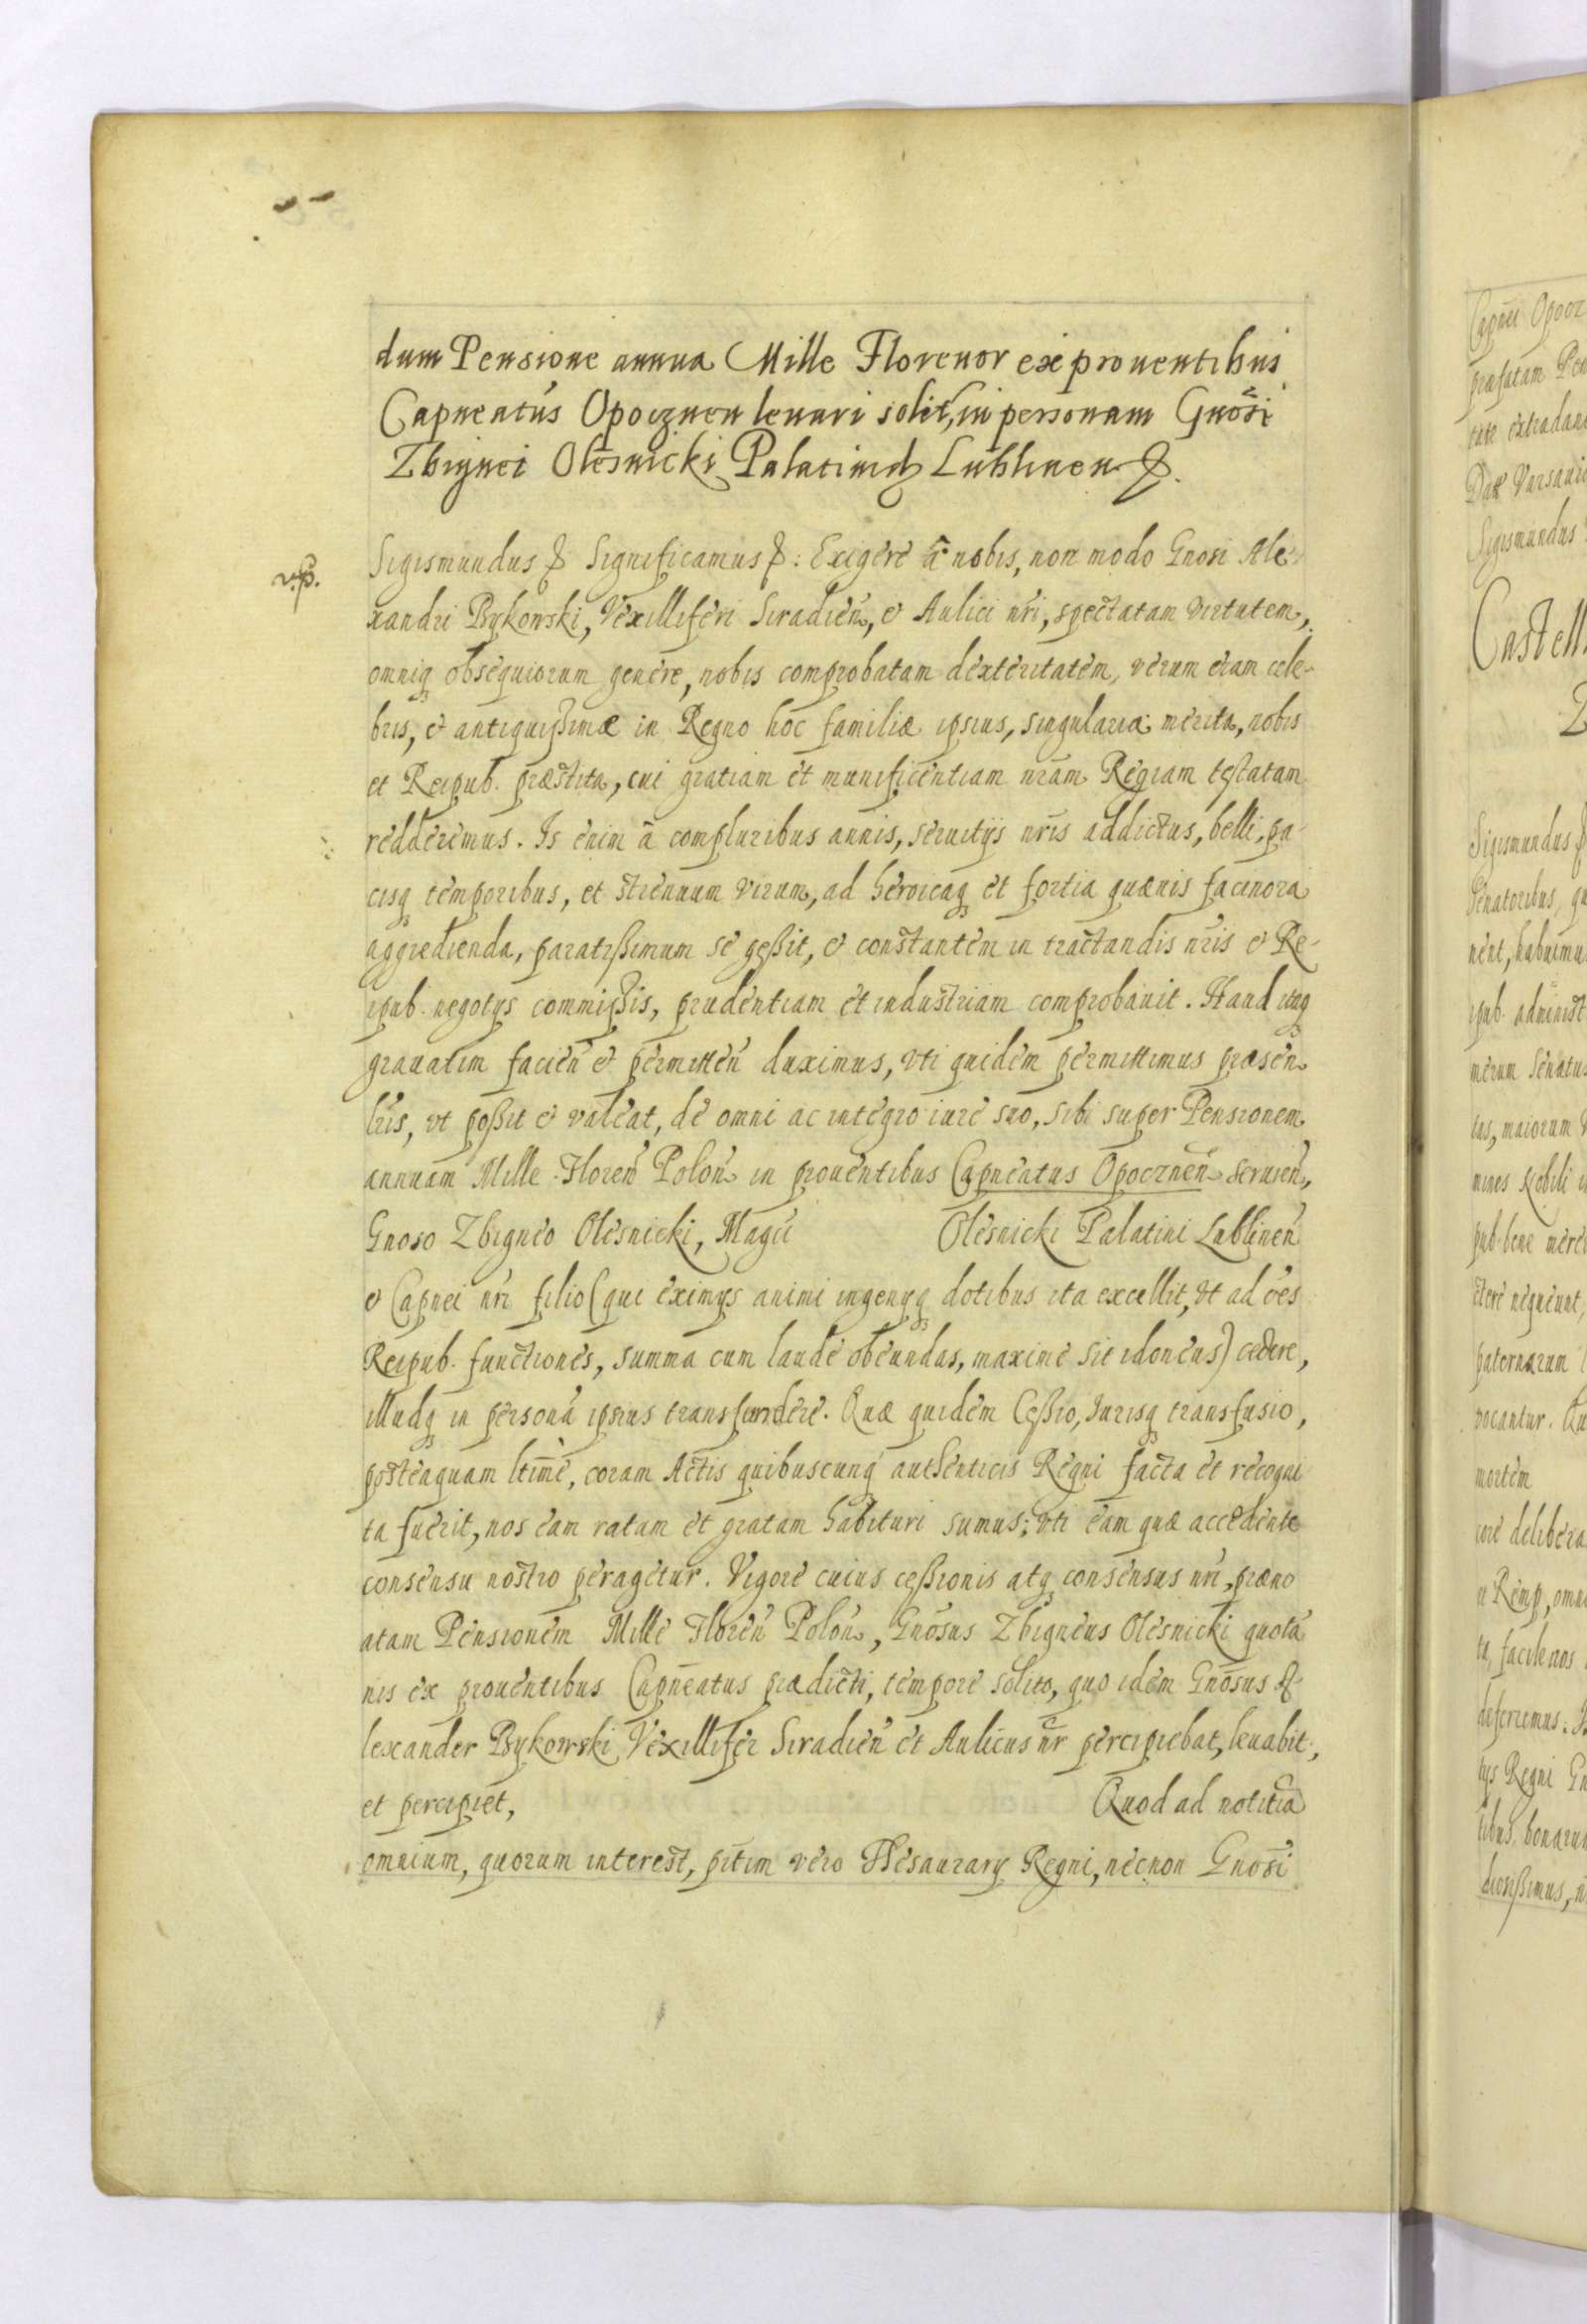 dum Pensione annua Mille Florenor ex prouentibus
Capneatus Opocznen leuari solit, in personam Gnosi
Zbignei Olesnicki Palatinid Lublinen &.
Sigismundus & Significamus &: Exigere à nobis, non modo Gnosi Ale-
xandri Bykowski, Vexilliferi Siradien, & Aulici nri, spectatam virtutem,
omniq obsequiorum genere, nobis comprobatam dexteritatem, verum etam cele-
bris, & antiquissimæ in Regno hoc familiæ ipsius, singularia merita, nobis
et Reipub. præstita, cui gratiam et munificentiam nram Regiam testatam
redderemus. Is enim à compluribus annis, seruitijs nris addictus, belli, pa-
cisq temporibus, et strenuum virum, ad heroicaq et fortia quæuis facinora
aggredienda, paratissimum se gessit, & constantem in tractandis nris & Re-
ipub. negotijs commissis, prudentiam et industriam comprobauit. Haud itaq
grauatim facien & permitten duximus, vti quidem permittimus præsen
tris, vt possit & valeat, de omni ac integro iure suo, sibi super Pensionem
annuam Mille Floren Polon in prouentibus Capneatus Opocznen seruien,
Gnoso Zbigneo Olesnicki, Magci Olesnicki Palatini Lublinen
& Capnei nri filio (qui eximijs animi ingenijq dotibus ita excellit, vt ad oes
Reipub. functiones, summa cum laude obeundas, maxime sit idoneus) cedere,
illudq in persona ipsius transfundere. Quæ quidem Cessio, Iurisq transfusio,
posteaquam ltime, coram Actis quibuscunq authenticis Regni facta et recogni
ta fuerit, nos eam ratam et gratam habituri sumus; vti eam quæ accedente
consensu nostro peragetur. Vigore cuius cessionis atq consensus nri, præno
atam Pensionem Mille Floren Polon, Gnosus Zbigneus Olesnicki quota
nis ex prouentibus Capneatus prædicti, tempore solito, quo idem Gnosus A-
lexander Bykowski Vexillifer Siradien et Aulicus nr percipiebat, leuabit,
et percipiet, Quod ad notitia
omnium, quorum interest, ptim vero Thesaurarij Regni, necnon Gnosi